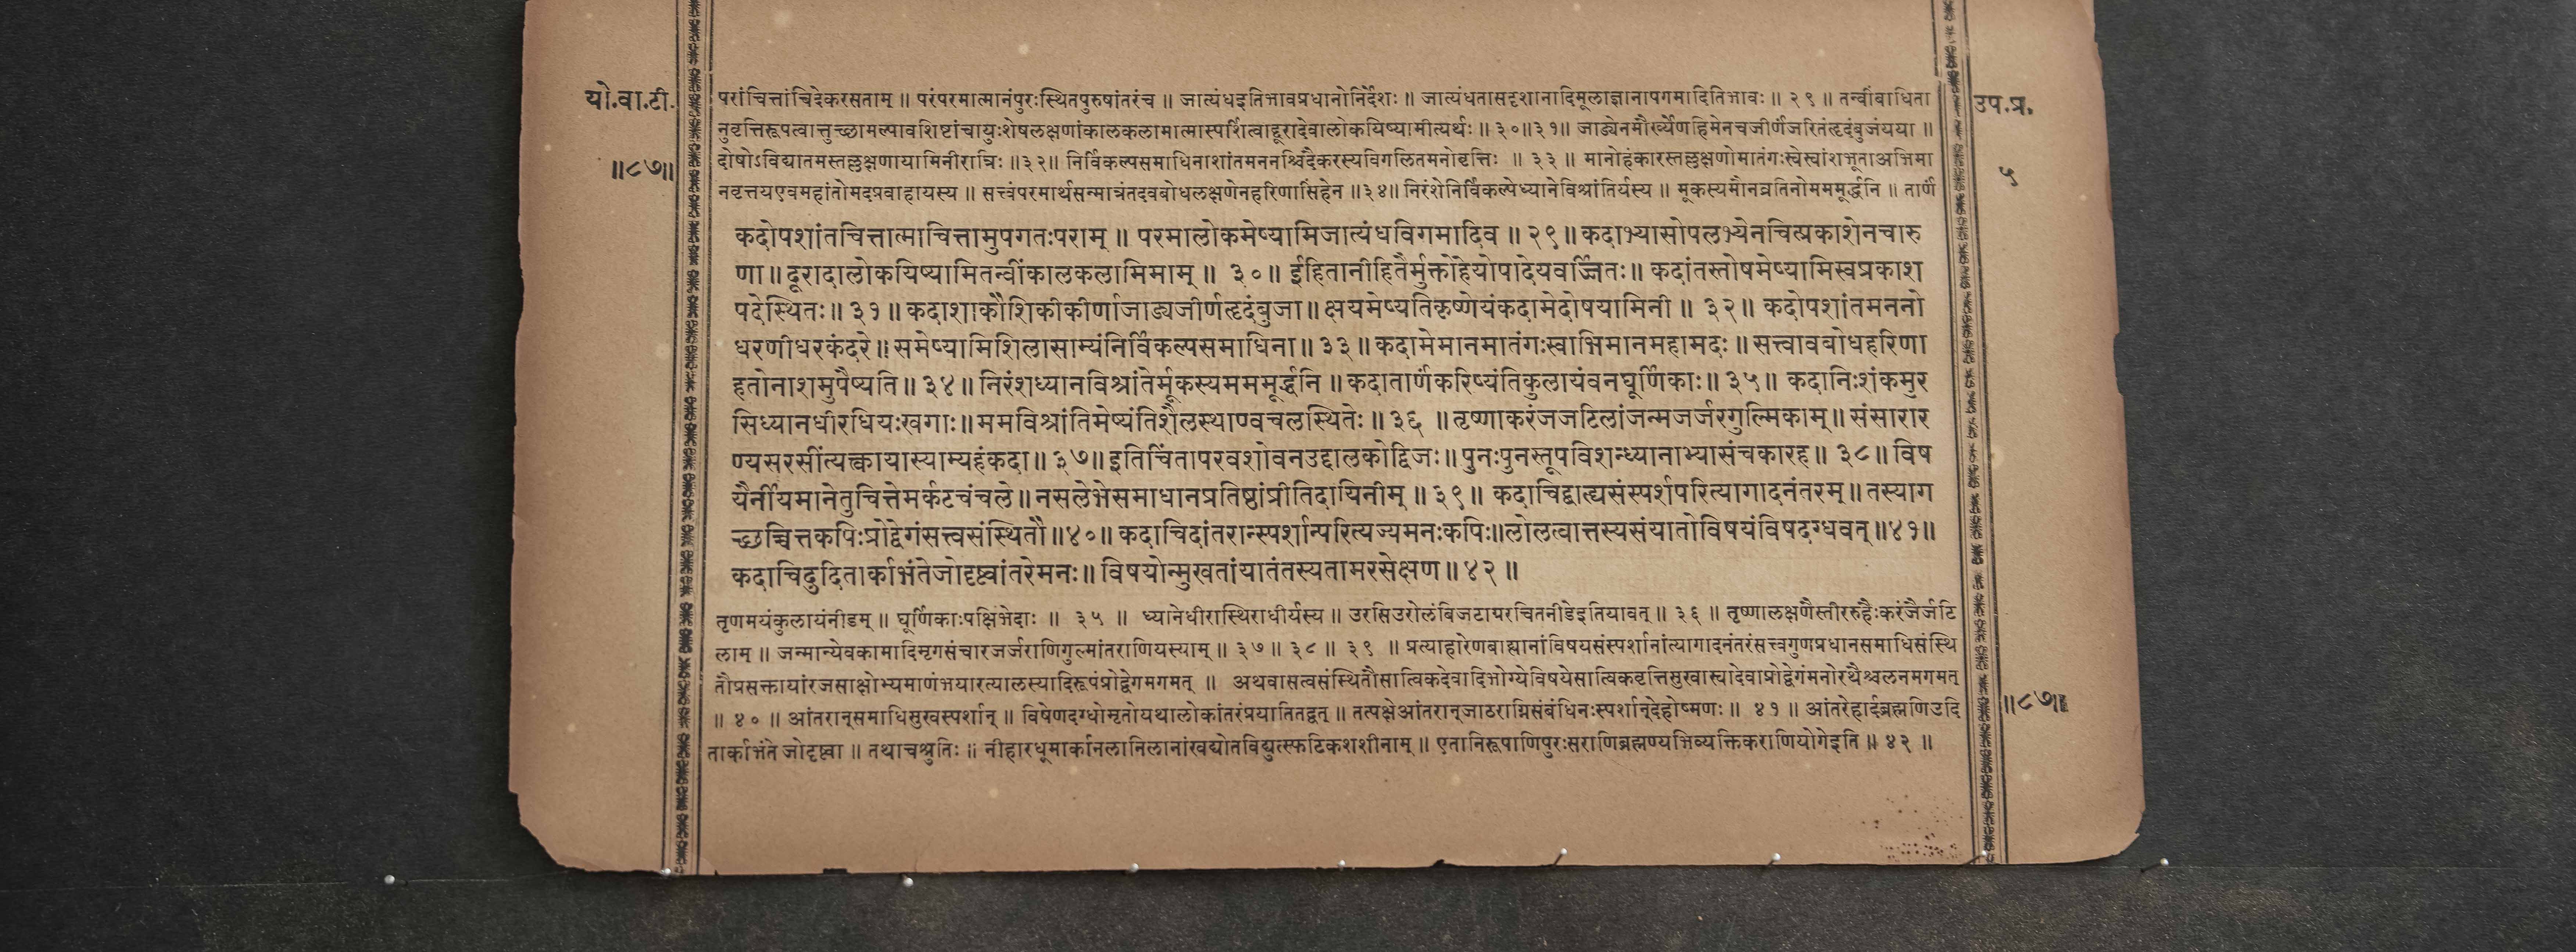 यो.वा.टी.
॥८७॥
परांचित्तांचिदेकरसताम् ॥ परंपरमात्मानंपुरःस्थितपुरुषांतरंच ॥ जात्यंधइतिभावप्रधानोनिर्देशः ॥ जात्यंधतासदृशानादिमूलाज्ञानापगमादितिभावः ॥ २९ ॥ तन्वींबाधिता
नुवृत्तिरूपत्वात्तुच्छामल्पावशिष्टांचायुःशेषलक्षणांकालकलामात्मास्पर्शित्वाद्दूरादेवालोकयिष्यामीत्यर्थः ॥ ३० ॥ ३१ ॥ जाड्येनमौर्ख्येणहिमेनचजीर्णंजरितंहृदंबुजंयया ॥
दोषोऽविद्यातमस्तल्लक्षणायामिनीरात्रिः ॥ ३२ ॥ निर्विकल्पसमाधिनाशांतमननश्चिदैकरस्यविगलितमनोवृत्तिः ॥ ३३ ॥ मानोहंकारस्तल्लक्षणोमातंगःस्वेस्वांशभूताअभिमा
नवृत्तयएवमहांतोमदप्रवाहायस्य ॥ सत्त्वंपरमार्थसन्मात्रंतदवबोधलक्षणेनहरिणासिंहेन ॥ ३४ ॥ निरंशेनिर्विकल्पेध्यानेविश्रांतिर्यस्य ॥ मूकस्यमौनव्रतिनोमममूर्द्धनि ॥ तार्णं
कदोपशांतचित्तात्माचित्तामुपगतःपराम् ॥ परमालोकमेष्यामिजात्यंधविगमादिव ॥ २९ ॥ कदाभ्यासोपलभ्येनचित्प्रकाशेनचारु
णा ॥ दूरादालोकयिष्यामितन्वींकालकलामिमाम् ॥ ३० ॥ ईहितानीहितैर्मुक्तोहेयोपादेयवर्ज्जितः ॥ कदांतस्तोषमेष्यामिस्वप्रकाश
पदेस्थितः ॥ ३१ ॥ कदाशाकौशिकीकीर्णाजाड्यजीर्णहृदंबुजा ॥ क्षयमेष्यतिकृष्णेयंकदामेदोषयामिनी ॥ ३२ ॥ कदोपशांतमननो
धरणीधरकंदरे ॥ समेष्यामिशिलासाम्यंनिर्विकल्पसमाधिना ॥ ३३ ॥ कदामेमानमातंगःस्वाभिमानमहामदः ॥ सत्त्वावबोधहरिणा
हतोनाशमुपैष्यति ॥ ३४ ॥ निरंशध्यानविश्रांतेर्मूकस्यमममूर्द्धनि ॥ कदातार्णंकरिष्यंतिकुलायंवनघूर्णिकाः ॥ ३५ ॥ कदानिःशंकमुर
सिध्यानधीरधियःखगाः ॥ ममविश्रांतिमेष्यंतिशैलस्थाण्वचलस्थितेः ॥ ३६ ॥ तृष्णाकरंजजटिलांजन्मजर्जरगुल्मिकाम् ॥ संसारार
ण्यसरसींत्यक्त्वायास्याम्यहंकदा ॥ ३७ ॥ इतिचिंतापरवशोवनउद्दालकोद्विजः ॥ पुनःपुनस्तूपविशन्ध्यानाभ्यासंचकारह ॥ ३८ ॥ विष
यैर्नीयमानेतुचित्तेमर्कटचंचले ॥ नसलेभेसमाधानप्रतिष्ठांप्रीतिदायिनीम् ॥ ३९ ॥ कदाचिद्बाह्यसंस्पर्शपरित्यागादनंतरम् ॥ तस्याग
च्छच्चित्तकपिःप्रोद्वेगंसत्त्वसंस्थितौ ॥४०॥ कदाचिदांतरान्स्पर्शान्परित्यज्यमनःकपिः॥लोलत्वात्तस्यसंयातोविषयंविषदग्धवत्॥४१॥
कदाचिदुदितार्काभंतेजोदृष्ट्वांतरेमनः॥ विषयोन्मुखतांयातंतस्यतामरसेक्षण ॥ ४२ ॥
तृणमयंकुलायंनीडम् ॥ घूर्णिकाःपक्षिभेदाः ॥ ३५ ॥ ध्यानेधीरास्थिराधीर्यस्य ॥ उरसिउरोलंबिजटाग्ररचितनीडेइतियावत् ॥ ३६ ॥ तृष्णालक्षणैस्तीररुहैःकरंजैर्जटि
लाम् ॥ जन्मान्येवकामादिमृगसंचारजर्जराणिगुल्मांतराणियस्याम् ॥ ३७ ॥ ३८ ॥ ३९ ॥ प्रत्याहारेणबाह्यानांविषयसंस्पर्शानांत्यागादनंतरंसत्त्वगुणप्रधानसमाधिसंस्थि
तौप्रसक्तायांरजसाक्षोभ्यमाणंभयारत्यालस्यादिरूपंप्रोद्वेगमगमत् ॥ अथवासत्वसंस्थितौसात्विकदेवादिभोग्येविषयेसात्विकवृत्तिसुखास्थादेवाप्रोद्वेगंमनोरथैश्चलनमगमत्
॥ ४० ॥ आंतरान्समाधिसुखस्पर्शान् ॥ विषेणदग्धोमृतोयथालोकांतरंप्रयातितद्वत् ॥ तत्पक्षेआंतरान्जाठराग्निसंबंधिनःस्पर्शान्देहोष्मणः ॥ ४१ ॥ आंतरेहार्दब्रह्मणिउदि
तार्काभंतेजोदृष्ट्वा ॥ तथाचश्रुतिः ॥ नीहारधूमार्कानलानिलानांखद्योतविद्युत्स्फटिकशशीनाम् ॥ एतानिरूपाणिपुरःसराणिब्रह्मण्यभिव्यक्तिकराणियोगेइति ॥ ४२ ॥
उप.प्र.
५
॥८७॥